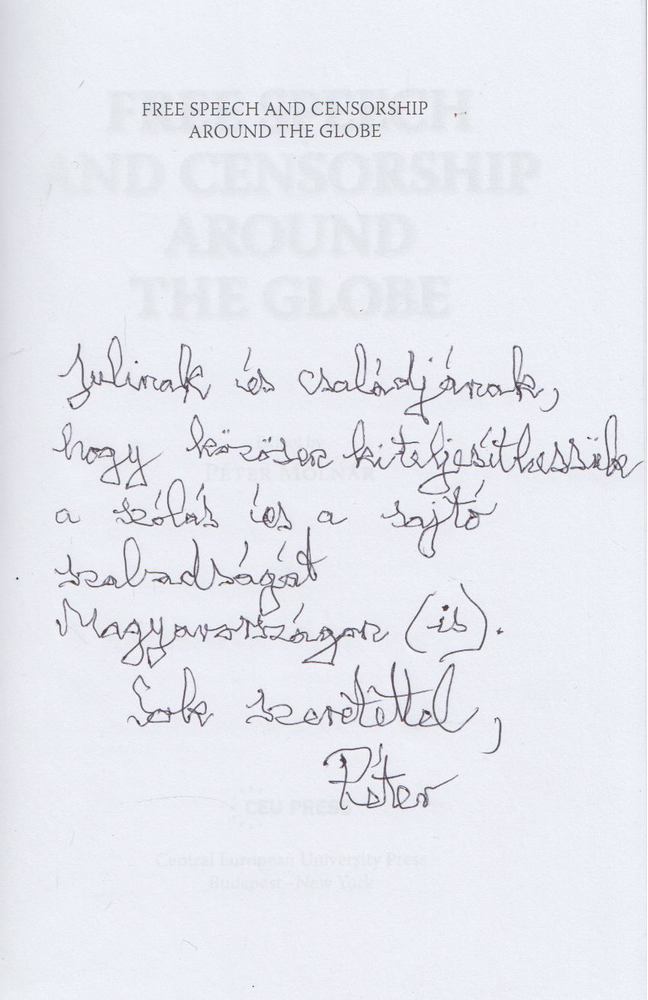 FREE SPEECH AND CENSORSHIP
AROUND THE GLOBE
FREE SPEECH
AND CENSORSHIP
AROUND
THE GLOBE
Julinak és családjának,
hogy közösen kiteljesíthessük
PÉTER MOLNÁR
a szólás és a sajtó
szabadságát
Magyarországon (is).
Sok szeretettel,
Péter
CEU PRESS
Central European University Press
Budapest–New York